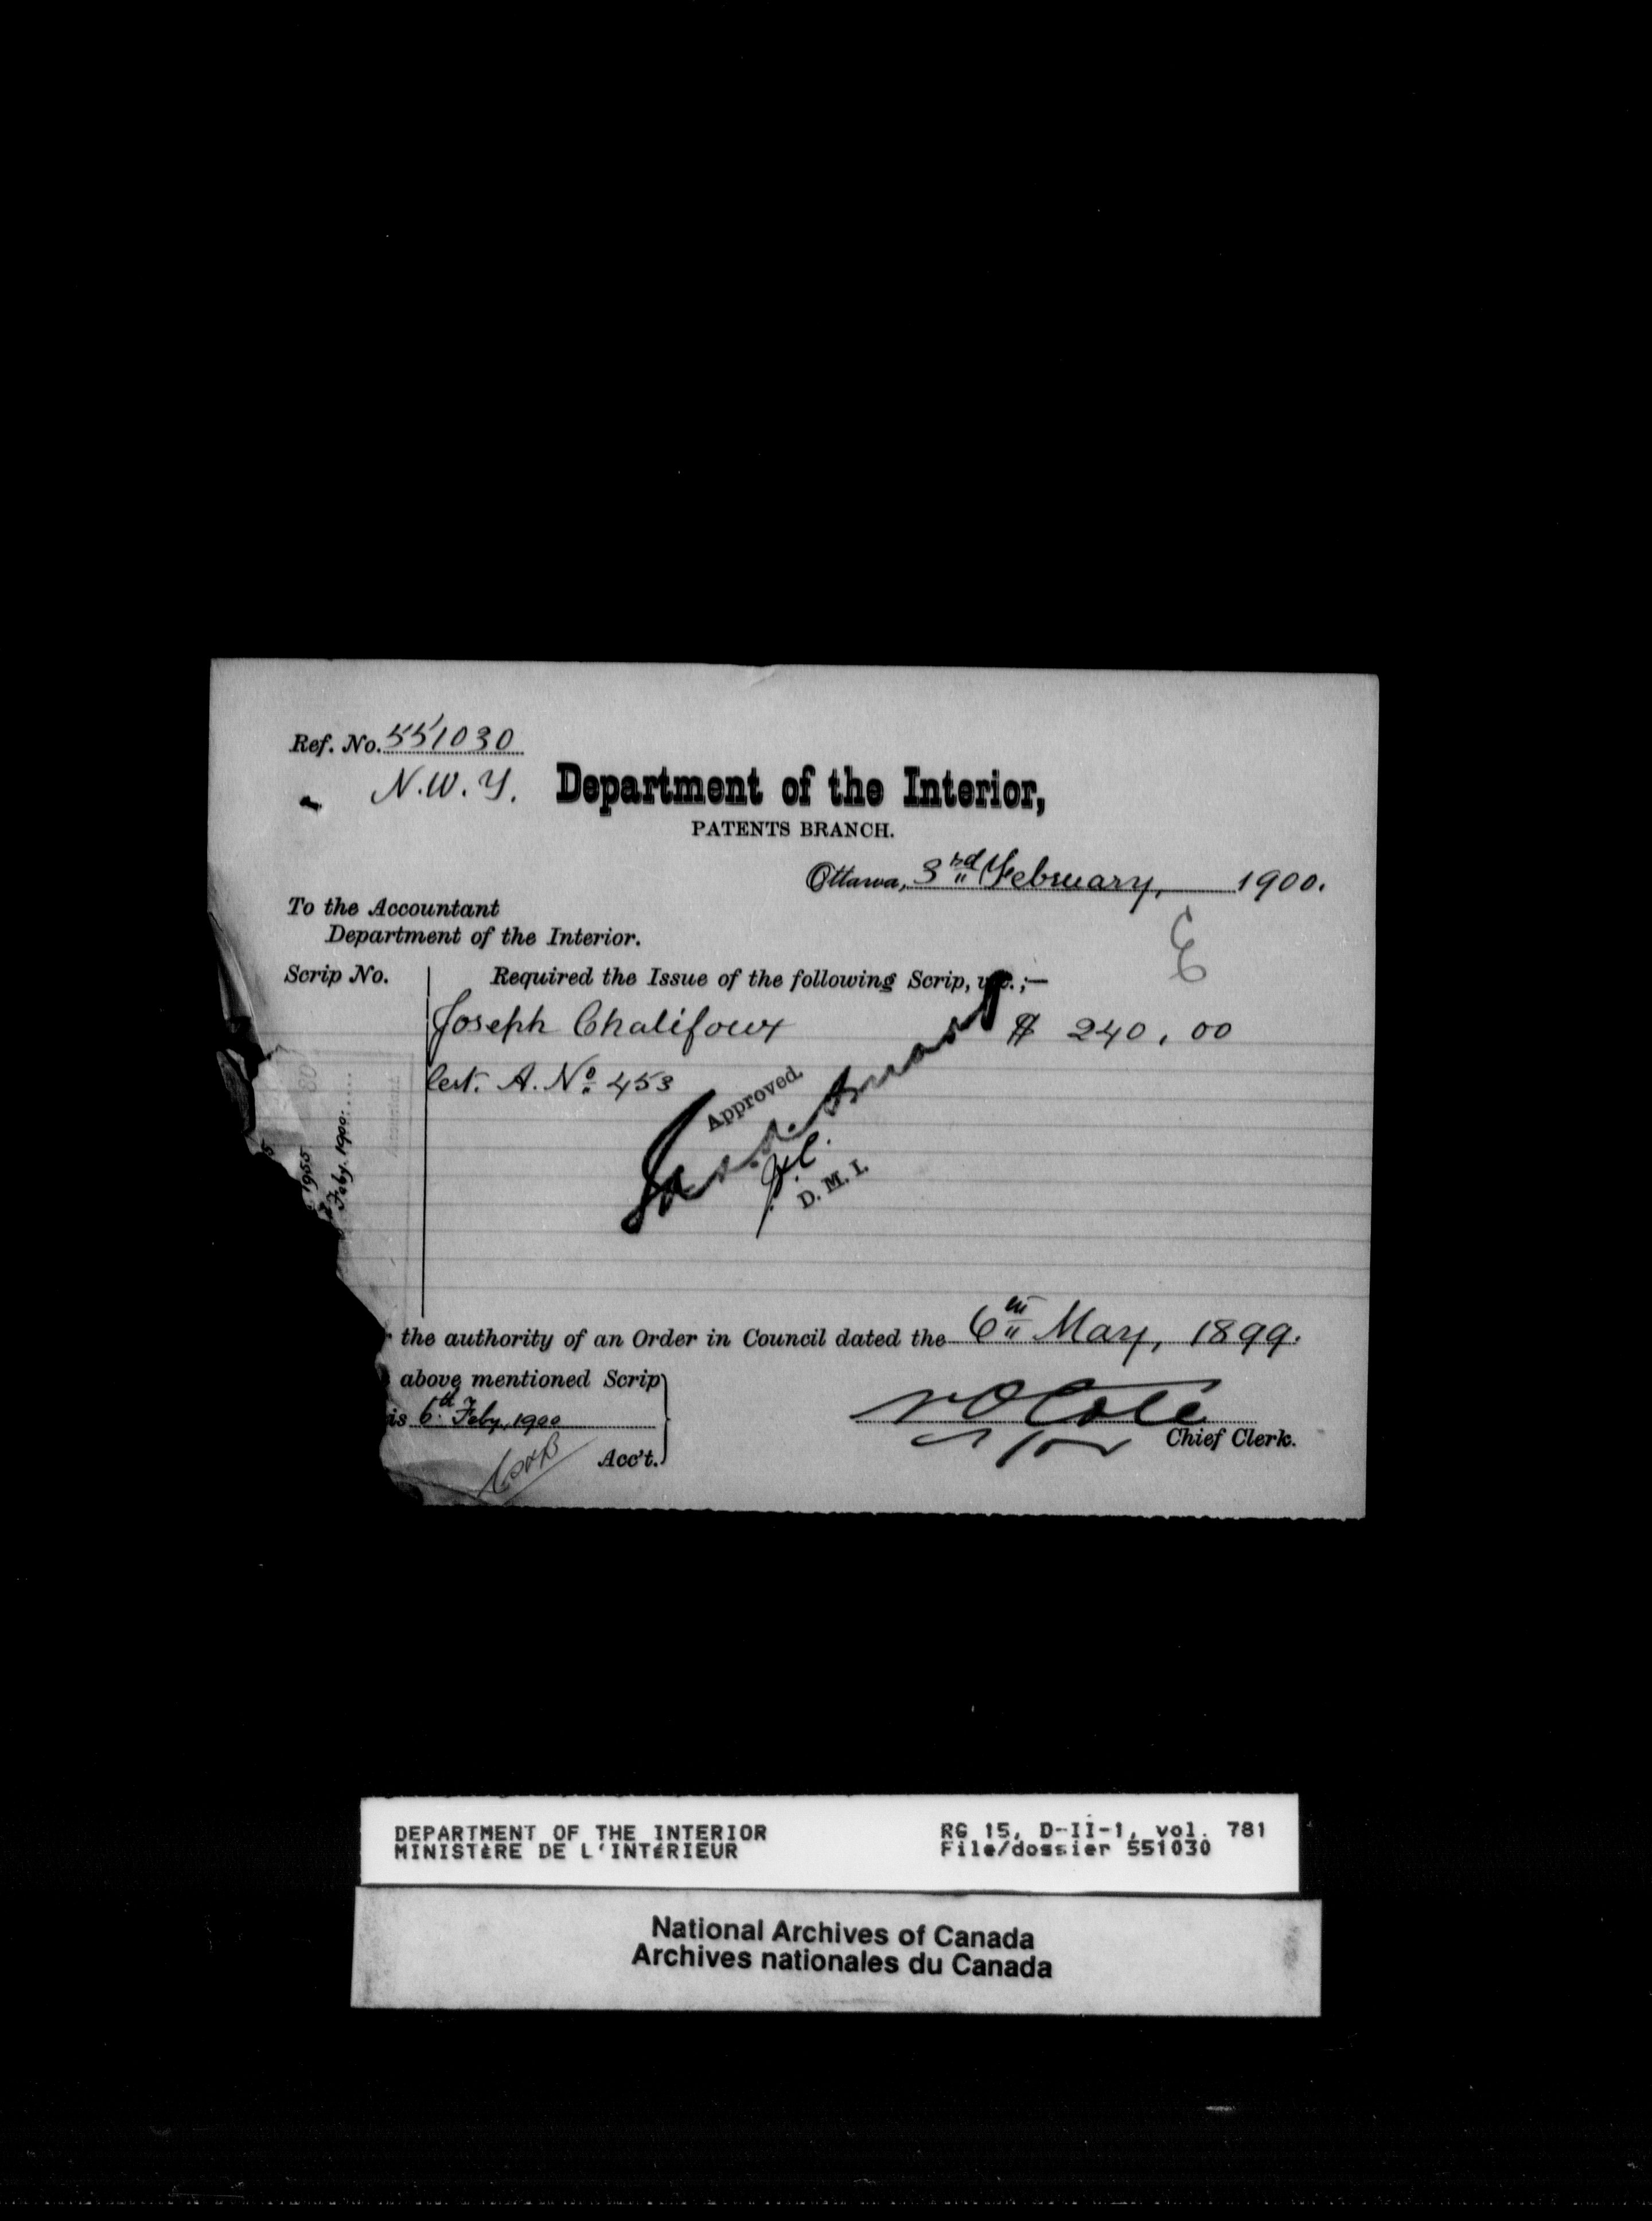 Ref. No. 551030
N.W.Y.
Department of the Interior,
PATENTS BRANCH.
Ottawa, 3rd February, 1900.
To the Accountant
Department of the Interior.
Scrip No.
Required the Issue of the following Scrip, ;—
Joseph Chalifoux $ 240,00
Cert. A. No. 453
Approved
D. M. I.
1955
Feby. 1900
the authority of an Order in Council dated the 6th May, 1899.
above mentioned Scrip
is 6th Feby, 1900
Acc't.
Chief Clerk.
DEPARTMENT OF THE INTERIOR
MINISTÈRE DE L'INTÉRIEUR
RG 15, D-II-1, vol. 781
File/dossier 551030
National Archives of Canada
Archives nationales du Canada